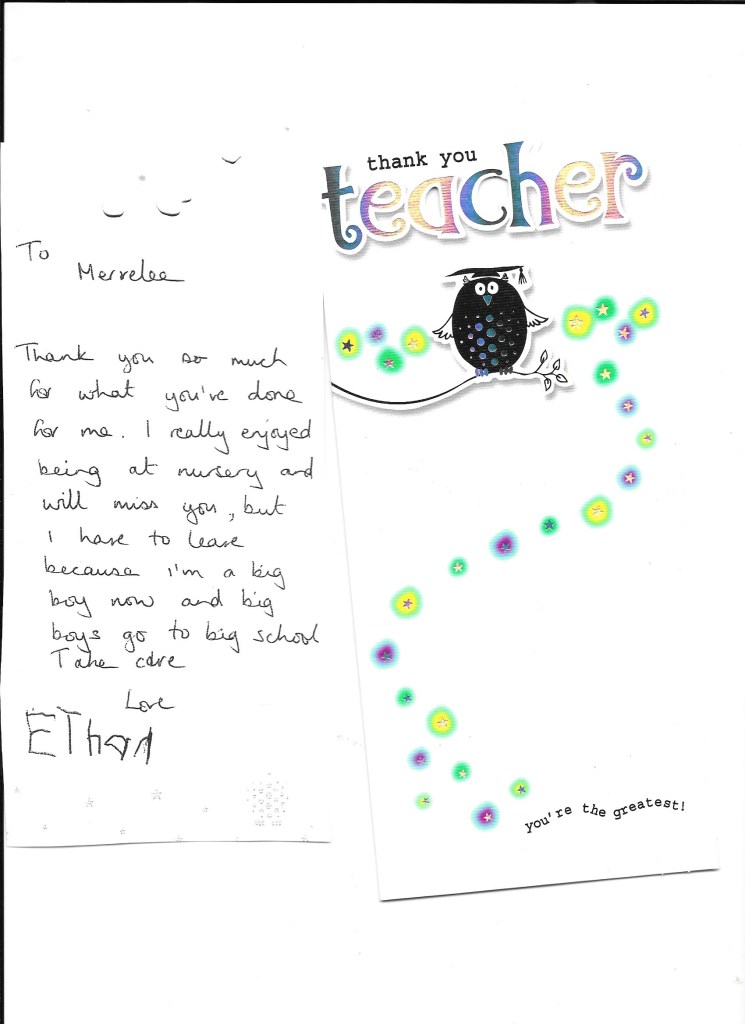 To
Mervelee
Thank you so much
for what you've done
for me. I really enjoyed
being at nursery and
will miss you, but
I have to leave
because i'm a big
boy now and big
boys go to big school
Take care
Love
EThan
thank you
teacher
you're the greatest!